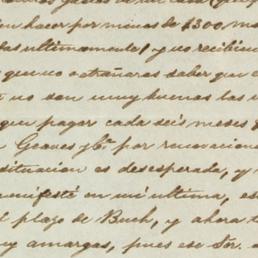 en hacer por menos de $300. me
das ultimamente) y no recibien
que no estrañares saber que e
no son muy buenas las
que pagar cada seis meses
Graves ybª por renovacione
situacion es desesperada, y
manifesté en mi ultima, es
el plazo de Buch, y ahora t
uy amargas, pues ese Sor.